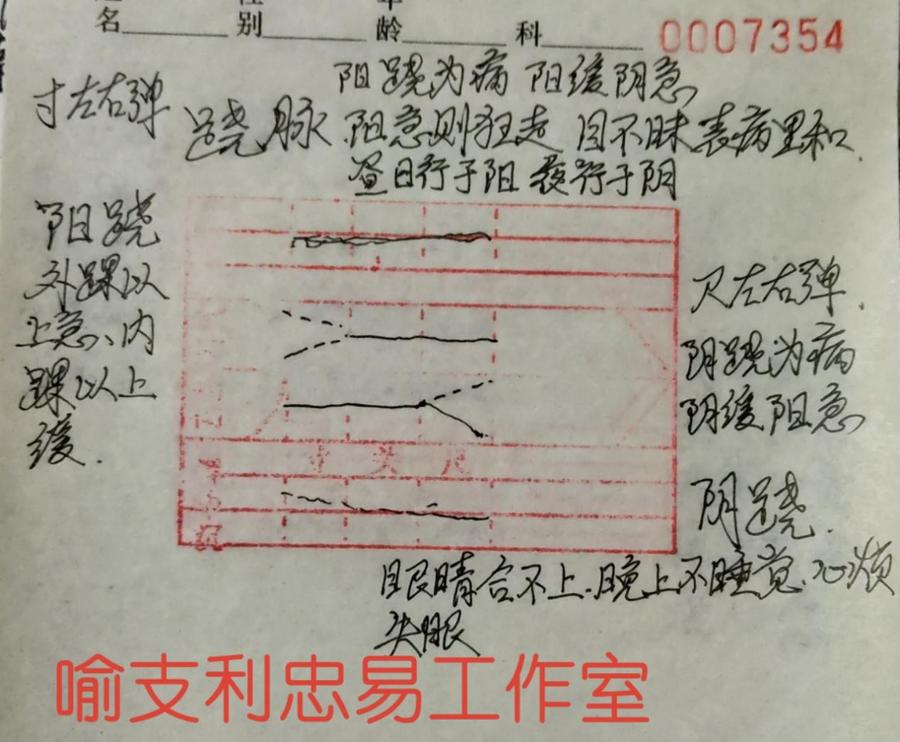 名 别 龄 科 0007354
阳跷为病 阳缓阴急
寸左右弹
跷脉 阳急则狂走 目不昧 表病里和.
昼日行于阳 夜行于阴
阳跷
外踝以
上急、内
踝以上
缓.
尺左右弹.
阴跷为病
阴缓阳急
寸 关 尺
阴跷.
眼睛合不上.晚上不睡觉.心烦
失眠
喻支利忠易工作室